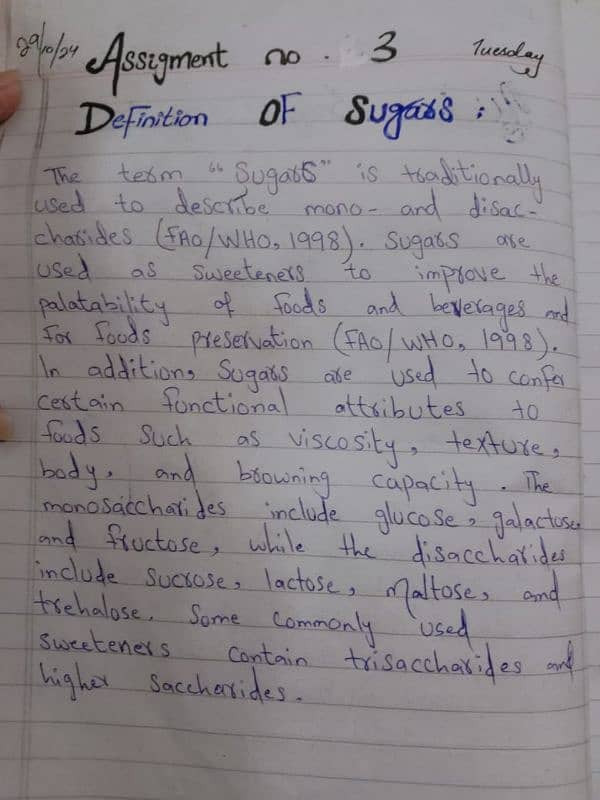 29/10/24 Assigment no. 3 Tuesday
Definition OF Sugars:
The term "Sugars" is traditionally
used to describe mono- and disac-
charides (FAO/WHO, 1998). Sugars are
used as sweeteners to improve the
palatability of foods and beverages and
for foods preservation (FAO/WHO, 1998).
In addition, Sugars are used to confer
certain functional attributes to
foods such as viscosity, texture,
body, and browning capacity. The
monosaccharides include glucose, galactose,
and fructose, while the disaccharides
include sucrose, lactose, maltose, and
trehalose. Some commonly used
sweeteners contain trisaccharides and
higher saccharides.